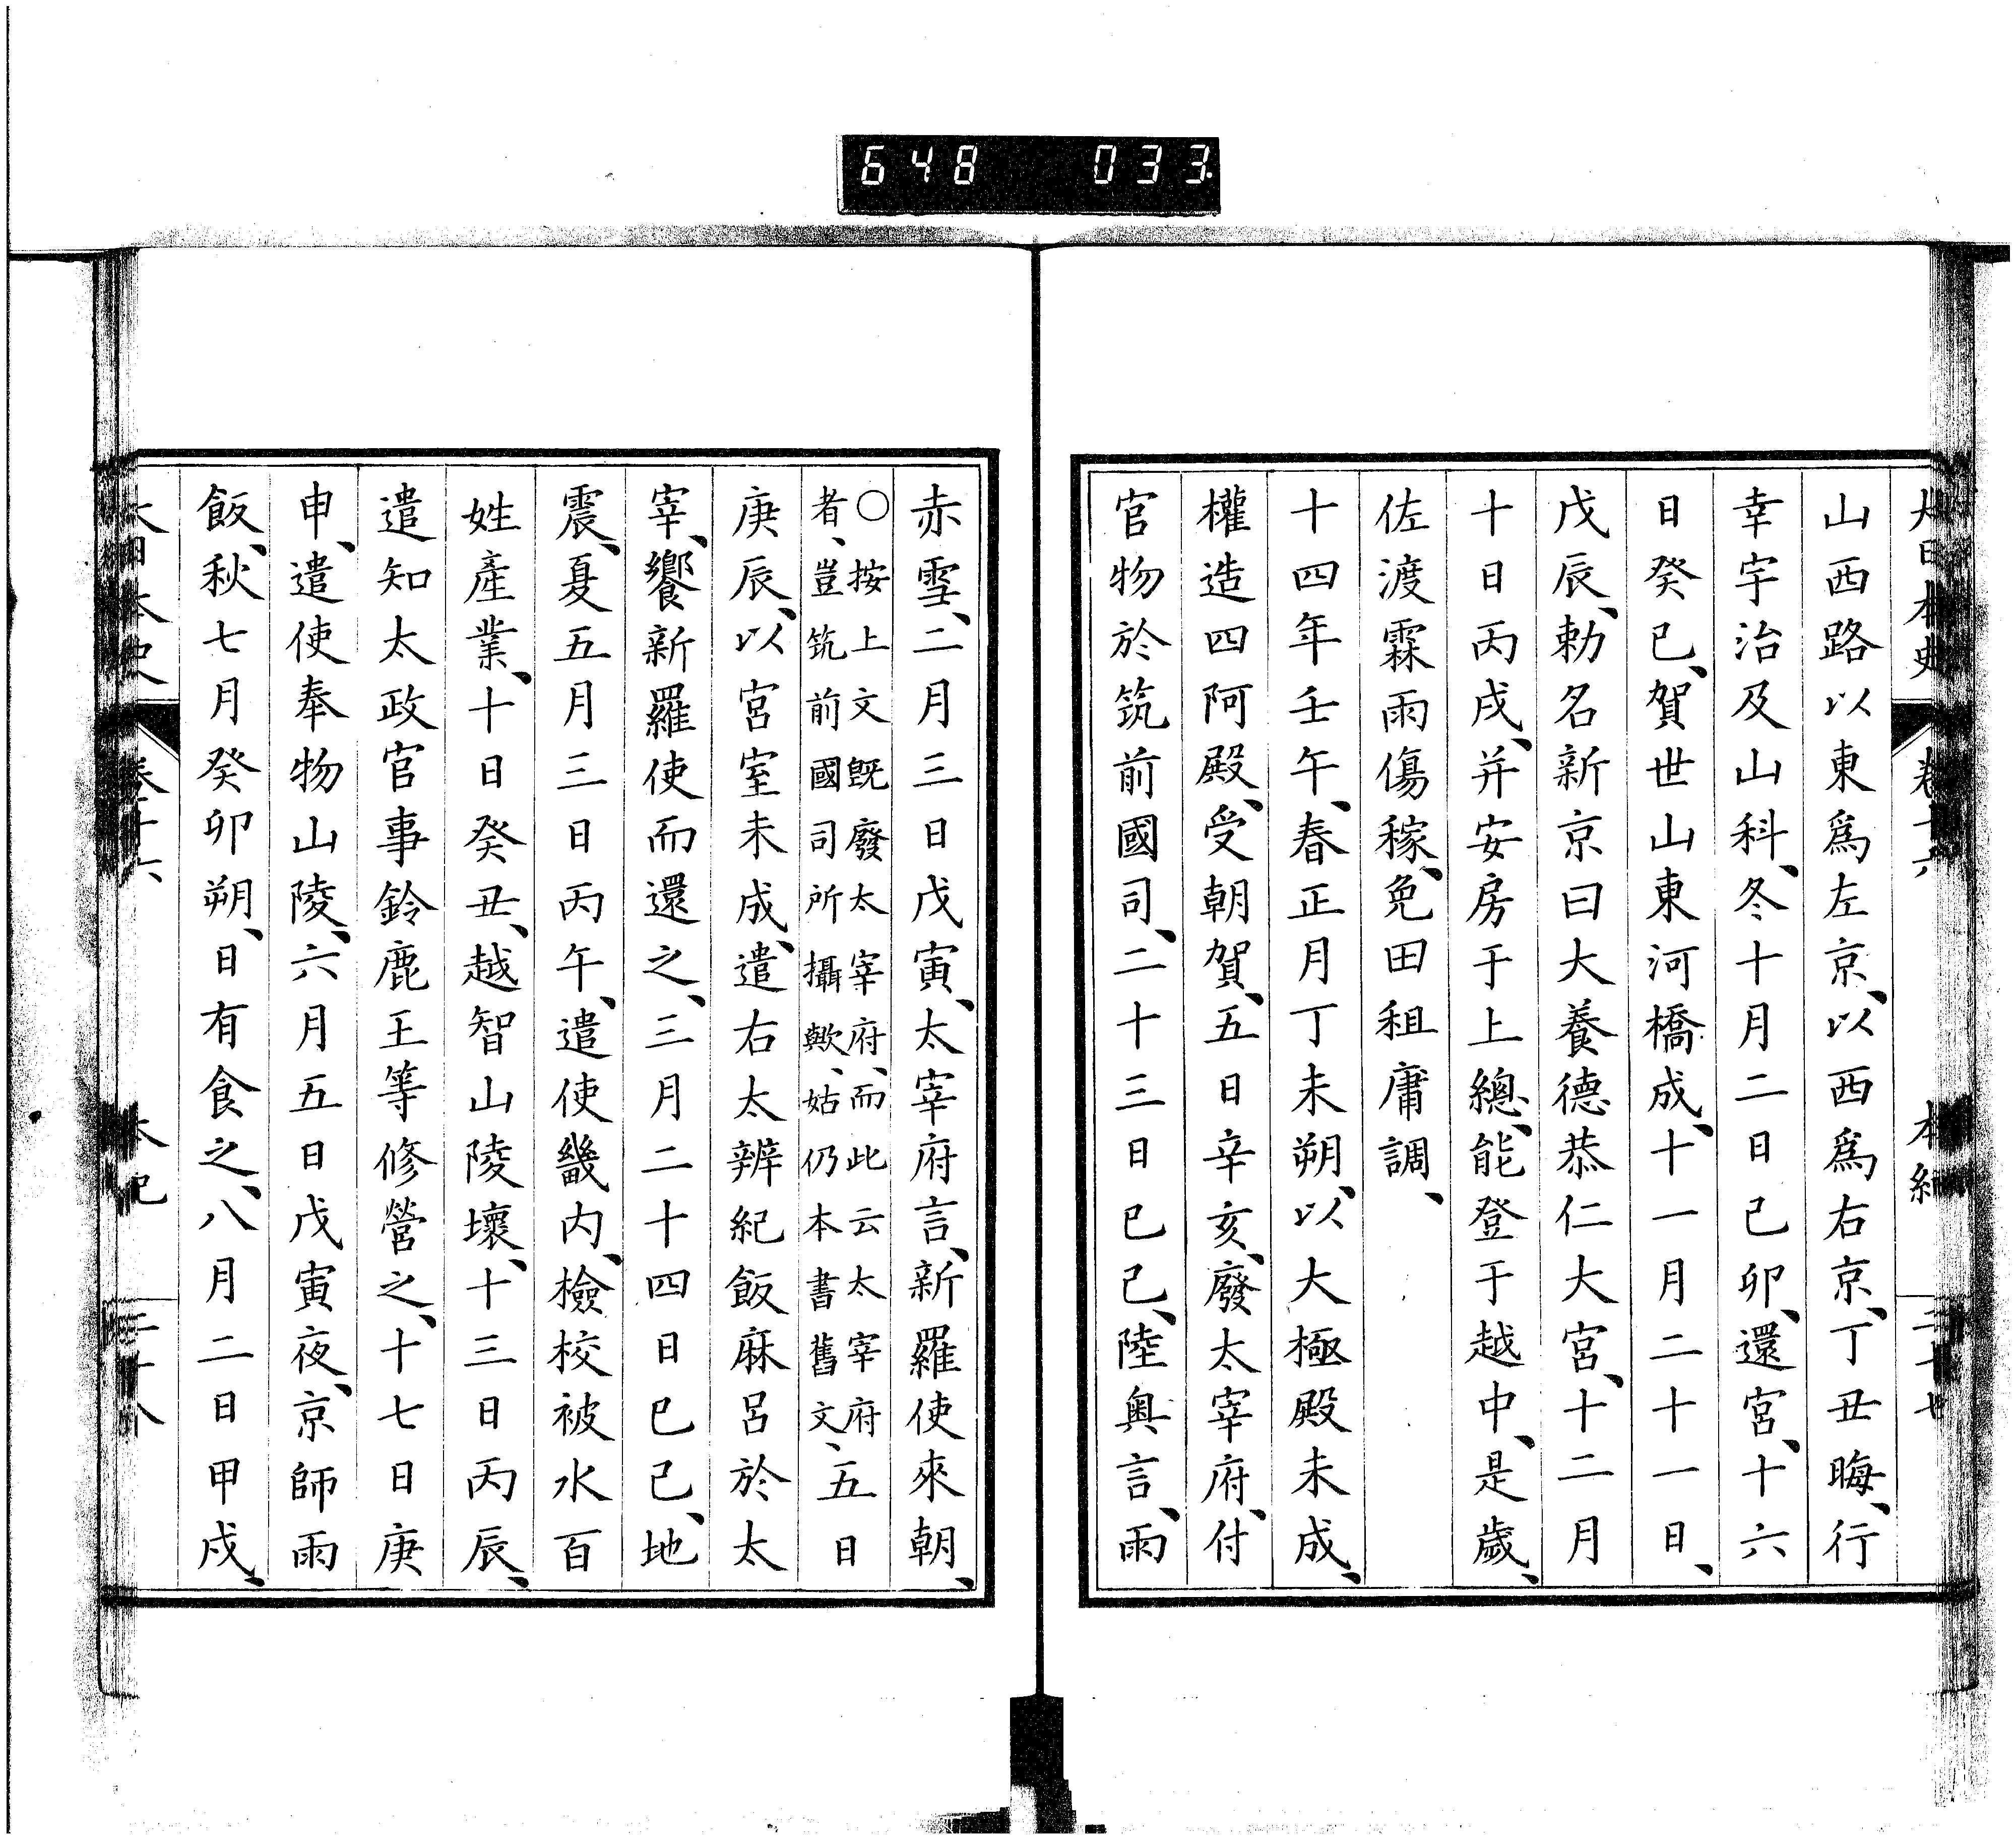 648 033
大日本史 卷十六 本紀 二十七
山西路以東爲左京、以西爲右京、丁丑晦、行
幸宇治及山科、冬十月二日己卯、還宮、十六
日癸巳、賀世山東河橋成、十一月二十一日、
戊辰、勅名新京曰大養德恭仁大宮、十二月
十日丙戌、幷安房于上總、能登于越中、是歲、
佐渡霖雨傷稼、免田租庸調、
十四年壬午、春正月丁未朔、以大極殿未成、
權造四阿殿、受朝賀、五日辛亥、廢太宰府、付
官物於筑前國司、二十三日己巳、陸奧言、雨
赤雪、二月三日戊寅、太宰府言、新羅使來朝、
〇按上文既廢太宰府、而此云太宰府
者、豈筑前國司所攝歟、姑仍本書舊文、五日
庚辰、以宮室未成、遣右太辨紀飯麻呂於太
宰、饗新羅使而還之、三月二十四日己巳、地
震、夏五月三日丙午、遣使畿內、檢校被水百
姓產業、十日癸丑、越智山陵壞、十三日丙辰、
遣知太政官事鈴鹿王等修營之、十七日庚
申、遣使奉物山陵、六月五日戊寅夜、京師雨
飯、秋七月癸卯朔、日有食之、八月二日甲戌、
大日本史 卷十六 本紀 二十八